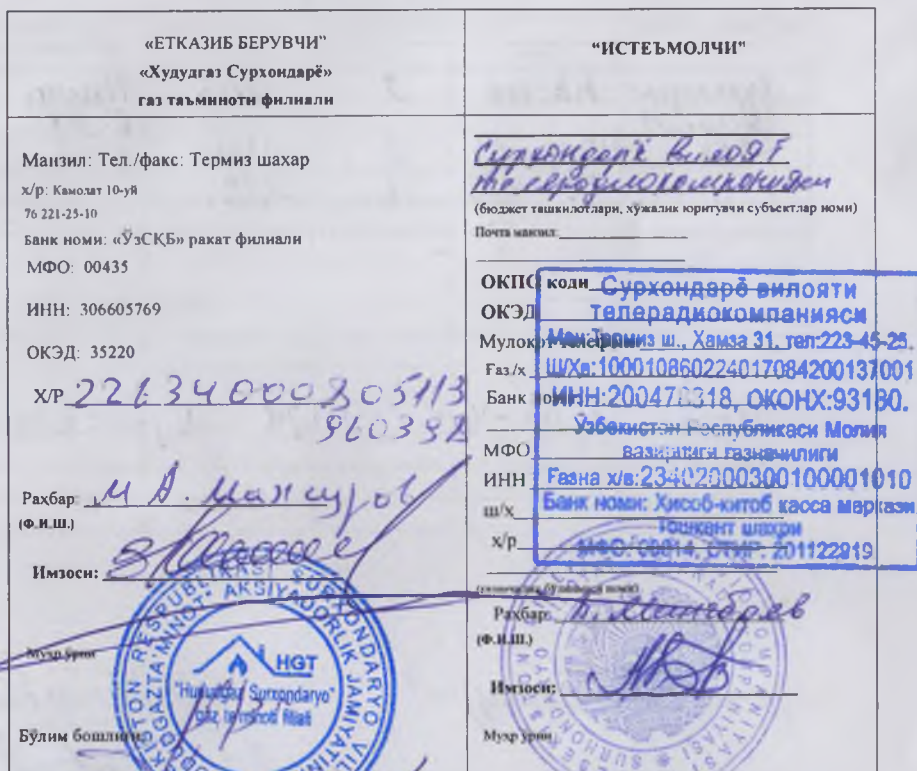 «ЕТКАЗИБ БЕРУВЧИ"
«Худудгаз Сурхондарё»
газ таъминоти филиали
Манзил: Тел./факс: Термиз шахар
х/р: Камолат 10-уй
76 221-25-10
Банк номи: «ЎзСҚБ» ракат филиали
МФО: 00435
ИНН: 306605769
ОКЭД: 35220
Х/Р
Рахбар: М А. Мансуров
(Ф.И.Ш.)
Имзоси:
Муҳр ўрни
Бўлим бошлиғи:
HGT
"Hududgaz Surxondaryo"
gaz ta'minoti filiali
"ИСТЕЪМОЛЧИ"
Сурхондарё вилоят
телерадиокомпанияси
(бюджет ташкилотлари, хўжалик юритувчи субъектлар номи)
Почта манзил:
ОКПО коди
ОКЭД
Мулоқот телефони:
Ғаз./х
Банк номи:
МФО
ИНН
ш/х
х/р
Рахбар:
(Ф.И.Ш.)
Имзоси:
Муҳр ўрни
Сурхондарё вилояти
телерадиокомпанияси
Ман:Термиз ш., Хамза 31, тел:223-45-25.
Ш/Хв:100010860224017084200137001
ОКОНХ:93180.
Узбекистан Республикаси Молия
вазирлиги газначилиги
Ғазна х/в:23402000300100001010
Банк номи: Ҳисоб-китоб касса маркази
Тошкент шахри
МФО: 00014, СТИР: 201122919